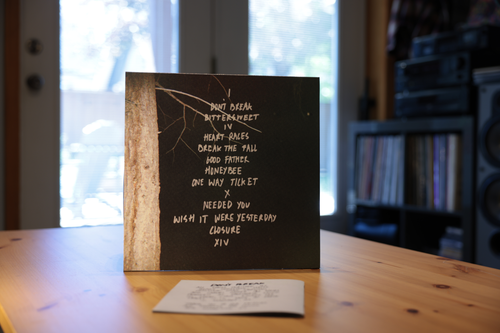 I
DONT BREAK
BITTERSWEET
IV
HEART RACES
BREAK THE FALL
GOOD FATHER
HONEYBEE
ONE WAY TICKET
X
NEEDED YOU
WISH IT WERE YESTERDAY
CLOSURE
XIV
DONT BREAK